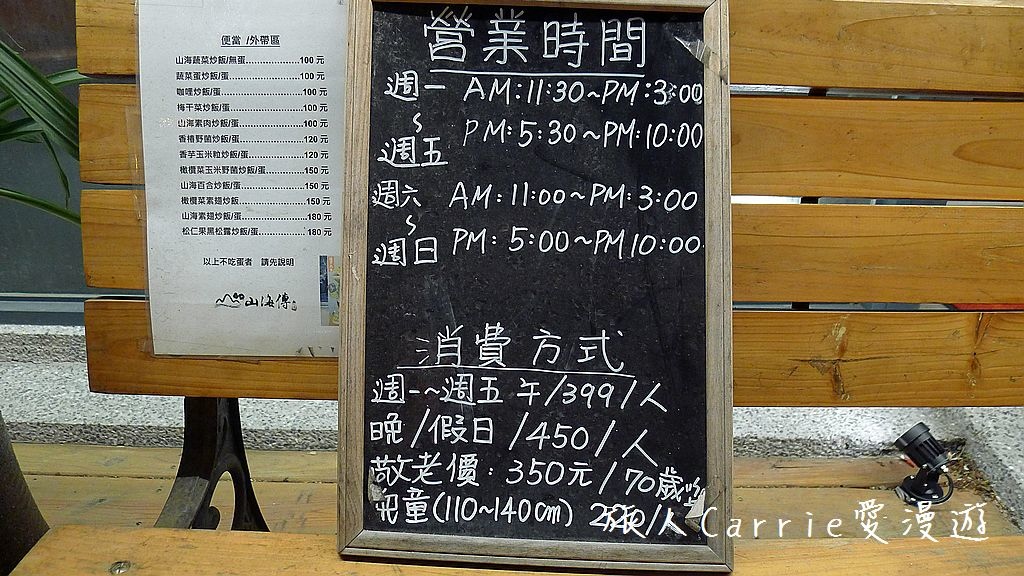 便當 /外帶區
山海蔬菜炒飯/無蛋........................100 元
蔬菜蛋炒飯/蛋........................100 元
咖哩炒飯/蛋........................100 元
梅干菜炒飯/蛋........................100 元
山海素肉炒飯/蛋........................100 元
香椿野菌炒飯/蛋........................120 元
香芋玉米粒炒飯/蛋........................120 元
橄欖菜玉米野菌炒飯/蛋..............150 元
山海百合炒飯/蛋........................150 元
橄欖菜素翅炒飯........................150 元
山海素翅炒飯/蛋........................180 元
松仁果黑松露炒飯/蛋..................180 元
以上不吃蛋者 請先說明
山海傳
營業時間
週一 AM:11:30~PM:3:00
~ PM:5:30~PM:10:00
週五
週六 AM:11:00~PM:3:00
~
週日 PM:5:00~PM10:00
消費方式
週一~週五 午/399/人
晚/假日/450/人
敬老價:350元/70歲
兒童(110~140cm)
旅人Carrie愛漫遊